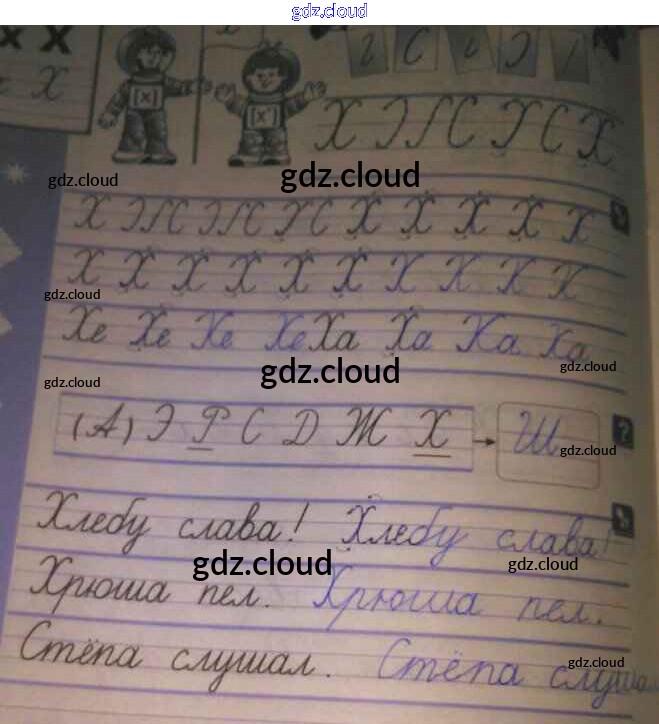 gdz.cloud
х Х
Х [х] [х']
Х Х С Х С Х
gdz.cloud gdz.cloud
Х Х Х Х Х Х
Х Х Х Х Х Х Х Х Х Х
gdz.cloud
Хе Хе Хе Хе Ха Ха Ха Ха
gdz.cloud gdz.cloud
gdz.cloud
(А) Э Р С Д Ж Х → Ш ?
gdz.cloud
Хлебу слава! Хлебу слава!
gdz.cloud gdz.cloud
Хрюша пел. Хрюша пел.
Стёпа слушал. Стёпа
gdz.cloud